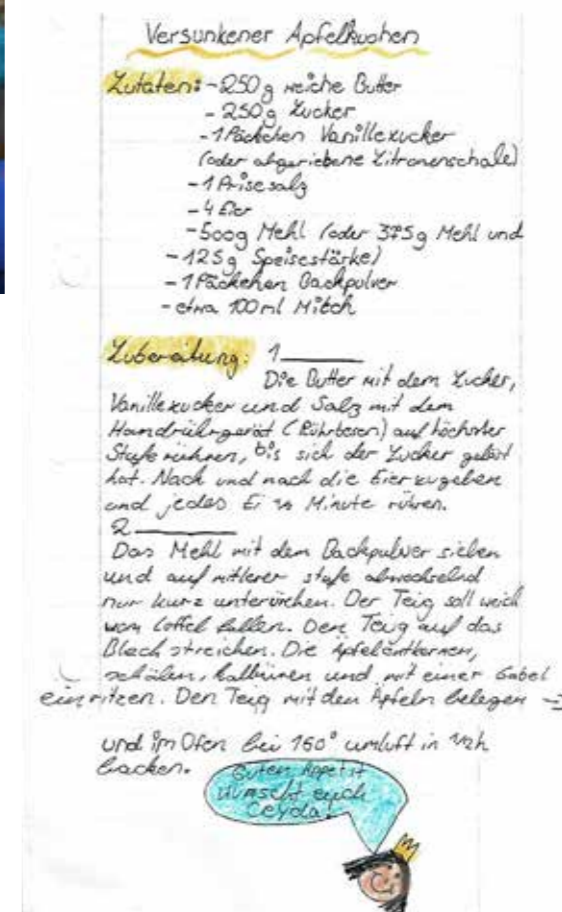 Versunkener Apfelkuchen
Zutaten: - 250 g weiche Butter
- 250 g Zucker
- 1 Päckchen Vanillezucker
(oder abgeriebene Zitronenschale)
- 1 Prise salz
- 4 Eier
- 500g Mehl (oder 375 g Mehl und
- 125 g Speisestärke)
- 1 Päckchen Backpulver
- etwa 100 ml Milch
Zubereitung: 1
Die Butter mit dem Zucker,
Vanillezucker und Salz mit dem
Handrührgerät (Rührbesen) auf höchster
Stufe rühren, bis sich der Zucker gelöst
hat. Nach und nach die Eier zugeben
und jedes Ei ½ Minute rühren.
2
Das Mehl mit dem Backpulver sieben
und auf mittlerer stufe abwechselnd
nur kurz unterrühren. Der Teig soll weich
vom Löffel fallen. Den Teig auf das
Blech streichen. Die Äpfel entkernen,
schälen, halbieren und mit einer Gabel
einritzen. Den Teig mit den Äpfeln belegen →
und im Ofen bei 160° umluft in 1/2h
backen.
Guten Appetit
wünscht euch
Ceyda!